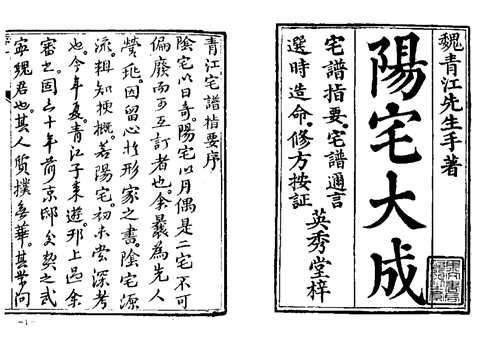 魏青江先生手著
陽宅大成
宅譜指要、宅譜邇言
選時造命、修方按証
英秀堂梓
青江宅譜指要序
陰宅以日奇。陽宅以月偶是二宅不可
偏廢而可互訂者也。余曩為先人
營兆。因留心於形家之書。陰宅源
流。粗知梗概。若陽宅。初未嘗深考
也。今年夏。青江子來遊邗上余
審之。固三十年前京邸久契之武
寧魏君也。其人質撲無華。其學問
-1-